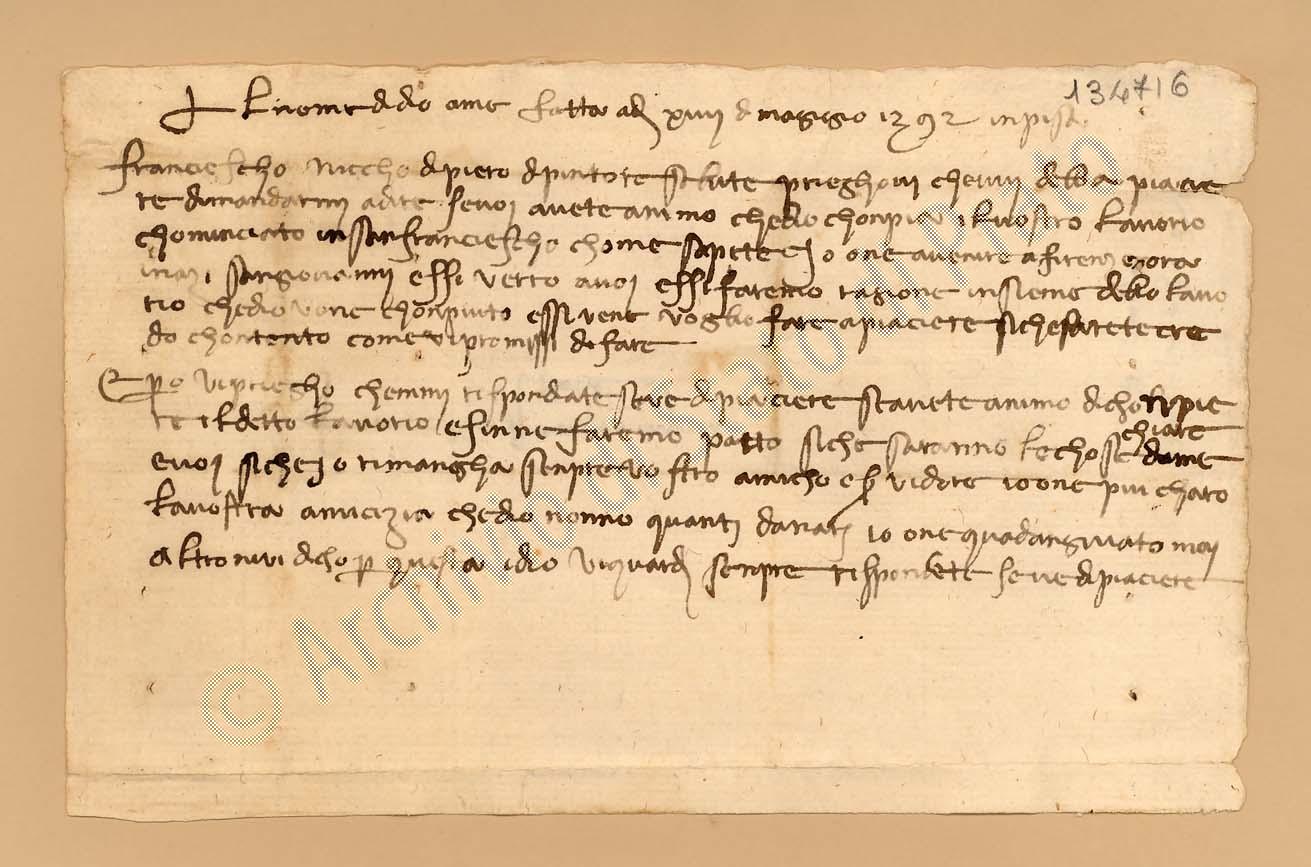 134716
Al nome di dio ame fatta adj xiiij di magigio 1392 in pisa
franciescho niccholo di piero dipintore salute prieghovi chevvi debba piacie
re di mandarmi a dire se voi avete animo chedio chonpia il vostro lavorio
chominciato in sanfranciescho chome sapete e jo one a venire a firenze ora
inazi sangiovanni essi verro a voi essi faremo ragione insieme dello lavo
rio chedio vone chonpiuto essi vene voglio fare a piaciere siche sarete cre
do chontento come vi promissi di fare
E pero vi priegho chemmi rispondiate seve di piaciere se avete animo di chonpie
re il detto lavorio e sinne faremo patto siche saranno le chose chiare da me
e voi siche jo rimangha senpre vostro amicho e per vi dire io one piu charo
la vostra amicizia chedio nonno quanti danarj io one quadangniato mai
altro nvi dicho per questa idio vi guardj senpre rispondete seve di piaciere
© Archivio di Stato di Prato